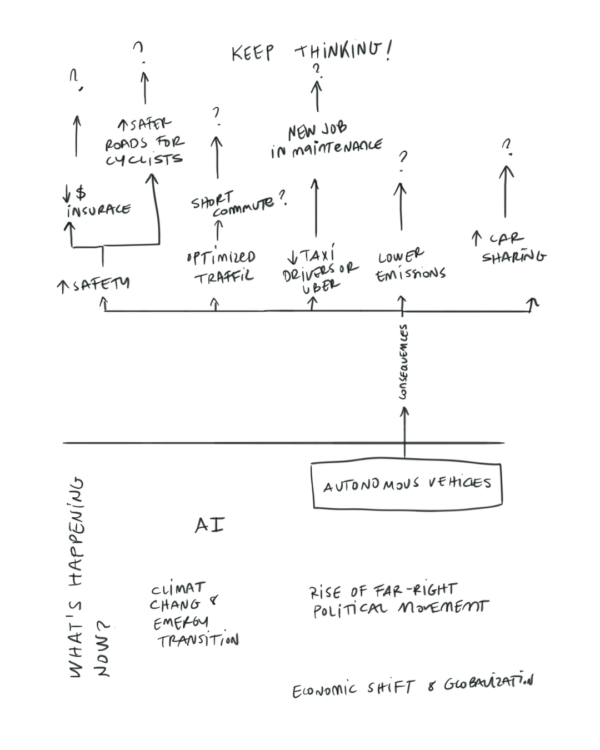 KEEP THINKING!
?
?
?
?
?
?
↑ SAFER
ROADS FOR
CYCLISTS
NEW JOB
IN MAINTENANCE
↓ $
INSURACE
SHORT
COMMUTE?
↑ SAFETY
OPTIMIZED
TRAFFIC
↓ TAXI
DRIVERS OR
UBER
LOWER
EMISSIONS
↑ CAR
SHARING
CONSEQUENCES
AUTONOMOUS VEHICLES
WHAT'S HAPPENING
NOW?
AI
CLIMAT
CHANG &
EMERGY
TRANSITION
RISE OF FAR-RIGHT
POLITICAL MOVEMENT
ECONOMIC SHIFT & GLOBALIZATION